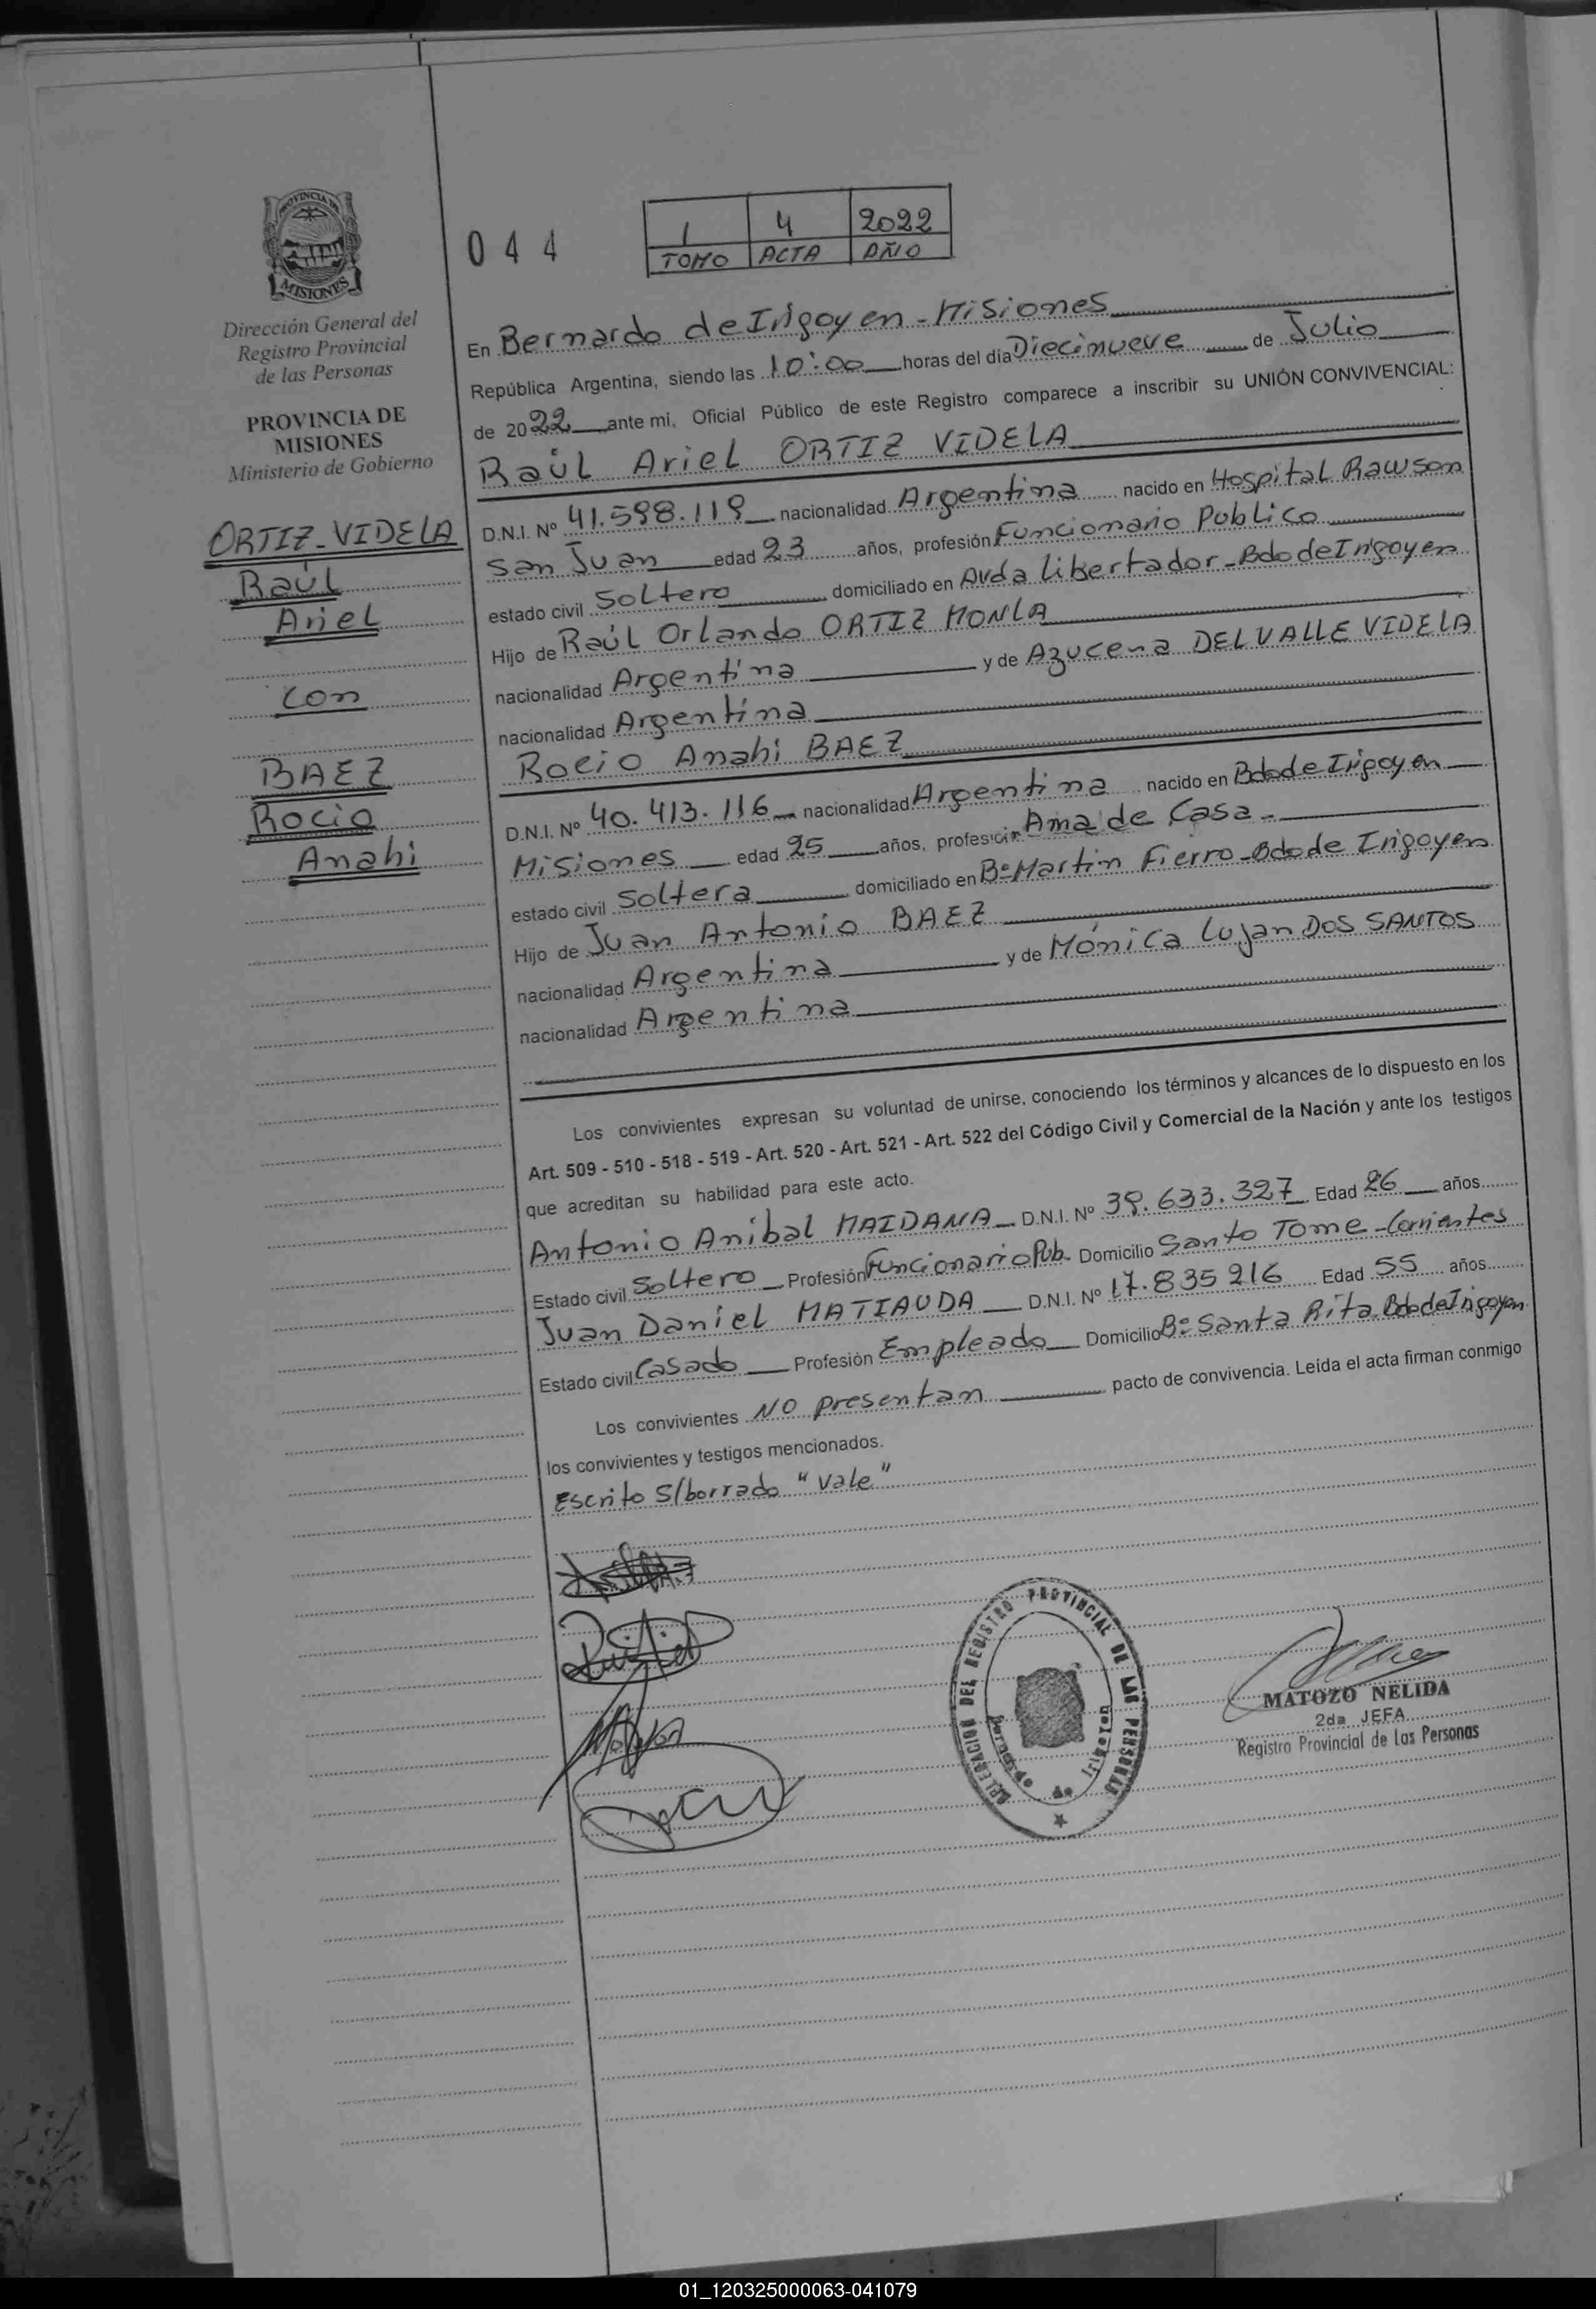 PROVINCIA DE
MISIONES
Dirección General del
Registro Provincial
de las Personas
PROVINCIA DE
MISIONES
Ministerio de Gobierno
ORTIZ-VIDELA
Raúl
Ariel
con
BAEZ
Rocio
Anahi
044
1 4 2022
TOMO ACTA AÑO
En Bernardo de Irigoyen - Misiones
República Argentina, siendo las 10:00 horas del día Diecinueve de Julio
de 2022 ante mi, Oficial Público de este Registro comparece a inscribir su UNIÓN CONVIVENCIAL:
Raúl Ariel ORTIZ VIDELA
D.N.I. Nº 41.598.119 nacionalidad Argentina nacido en Hospital Rawson
San Juan edad 23 años, profesión Funcionario Publico
estado civil Soltero domiciliado en Avda Libertador - Bdo de Irigoyen
Hijo de Raúl Orlando ORTIZ MONLA
nacionalidad Argentina y de Azucena DEL VALLE VIDELA
nacionalidad Argentina
Rocio Anahi BAEZ
D.N.I. Nº 40.413.116 nacionalidad Argentina nacido en Bdo de Irigoyen
Misiones edad 25 años, profesión Ama de Casa -
estado civil Soltera domiciliado en Bº Martin Fierro - Bdo de Irigoyen
Hijo de Juan Antonio BAEZ
nacionalidad Argentina y de Mónica Lujan DOS SANTOS
nacionalidad Argentina
Los convivientes expresan su voluntad de unirse, conociendo los términos y alcances de lo dispuesto en los
Art. 509 - 510 - 518 - 519 - Art. 520 - Art. 521 - Art. 522 del Código Civil y Comercial de la Nación y ante los testigos
que acreditan su habilidad para este acto.
Antonio Anibal MAIDANA D.N.I. Nº 39.633.327 Edad 26 años
Estado civil Soltero Profesión Funcionario Pub. Domicilio Santo Tome - Corrientes
Juan Daniel MATIAUDA D.N.I. Nº 17.835216 Edad 55 años
Estado civil Casado Profesión Empleado Domicilio Bº Santa Rita Bdo de Irigoyen
Los convivientes NO presentan pacto de convivencia. Leída el acta firman conmigo
los convivientes y testigos mencionados.
Escrito S/borrado "Vale"
DELEGACION DEL REGISTRO PROVINCIAL DE LAS PERSONAS
Bernardo de Irigoyen
MATOZO NELIDA
2da JEFA
Registro Provincial de Las Personas
01_120325000063-041079